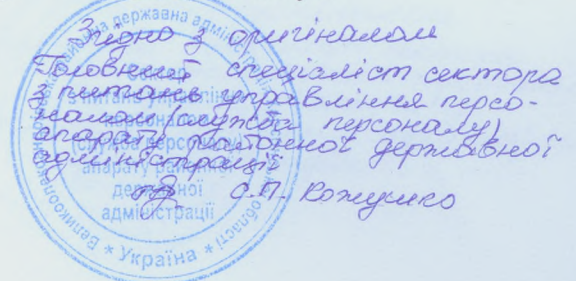 Згідно з оригіналом
Головний спеціаліст сектора
з питань управління персо-
налом (служба персоналу)
апарату районної державної
адміністрації
С.П. Кожушко
районна державна адміністрація
з питань управління
персоналом
(служба персоналу)
апарату районної
державної
адміністрації
області
* Україна *